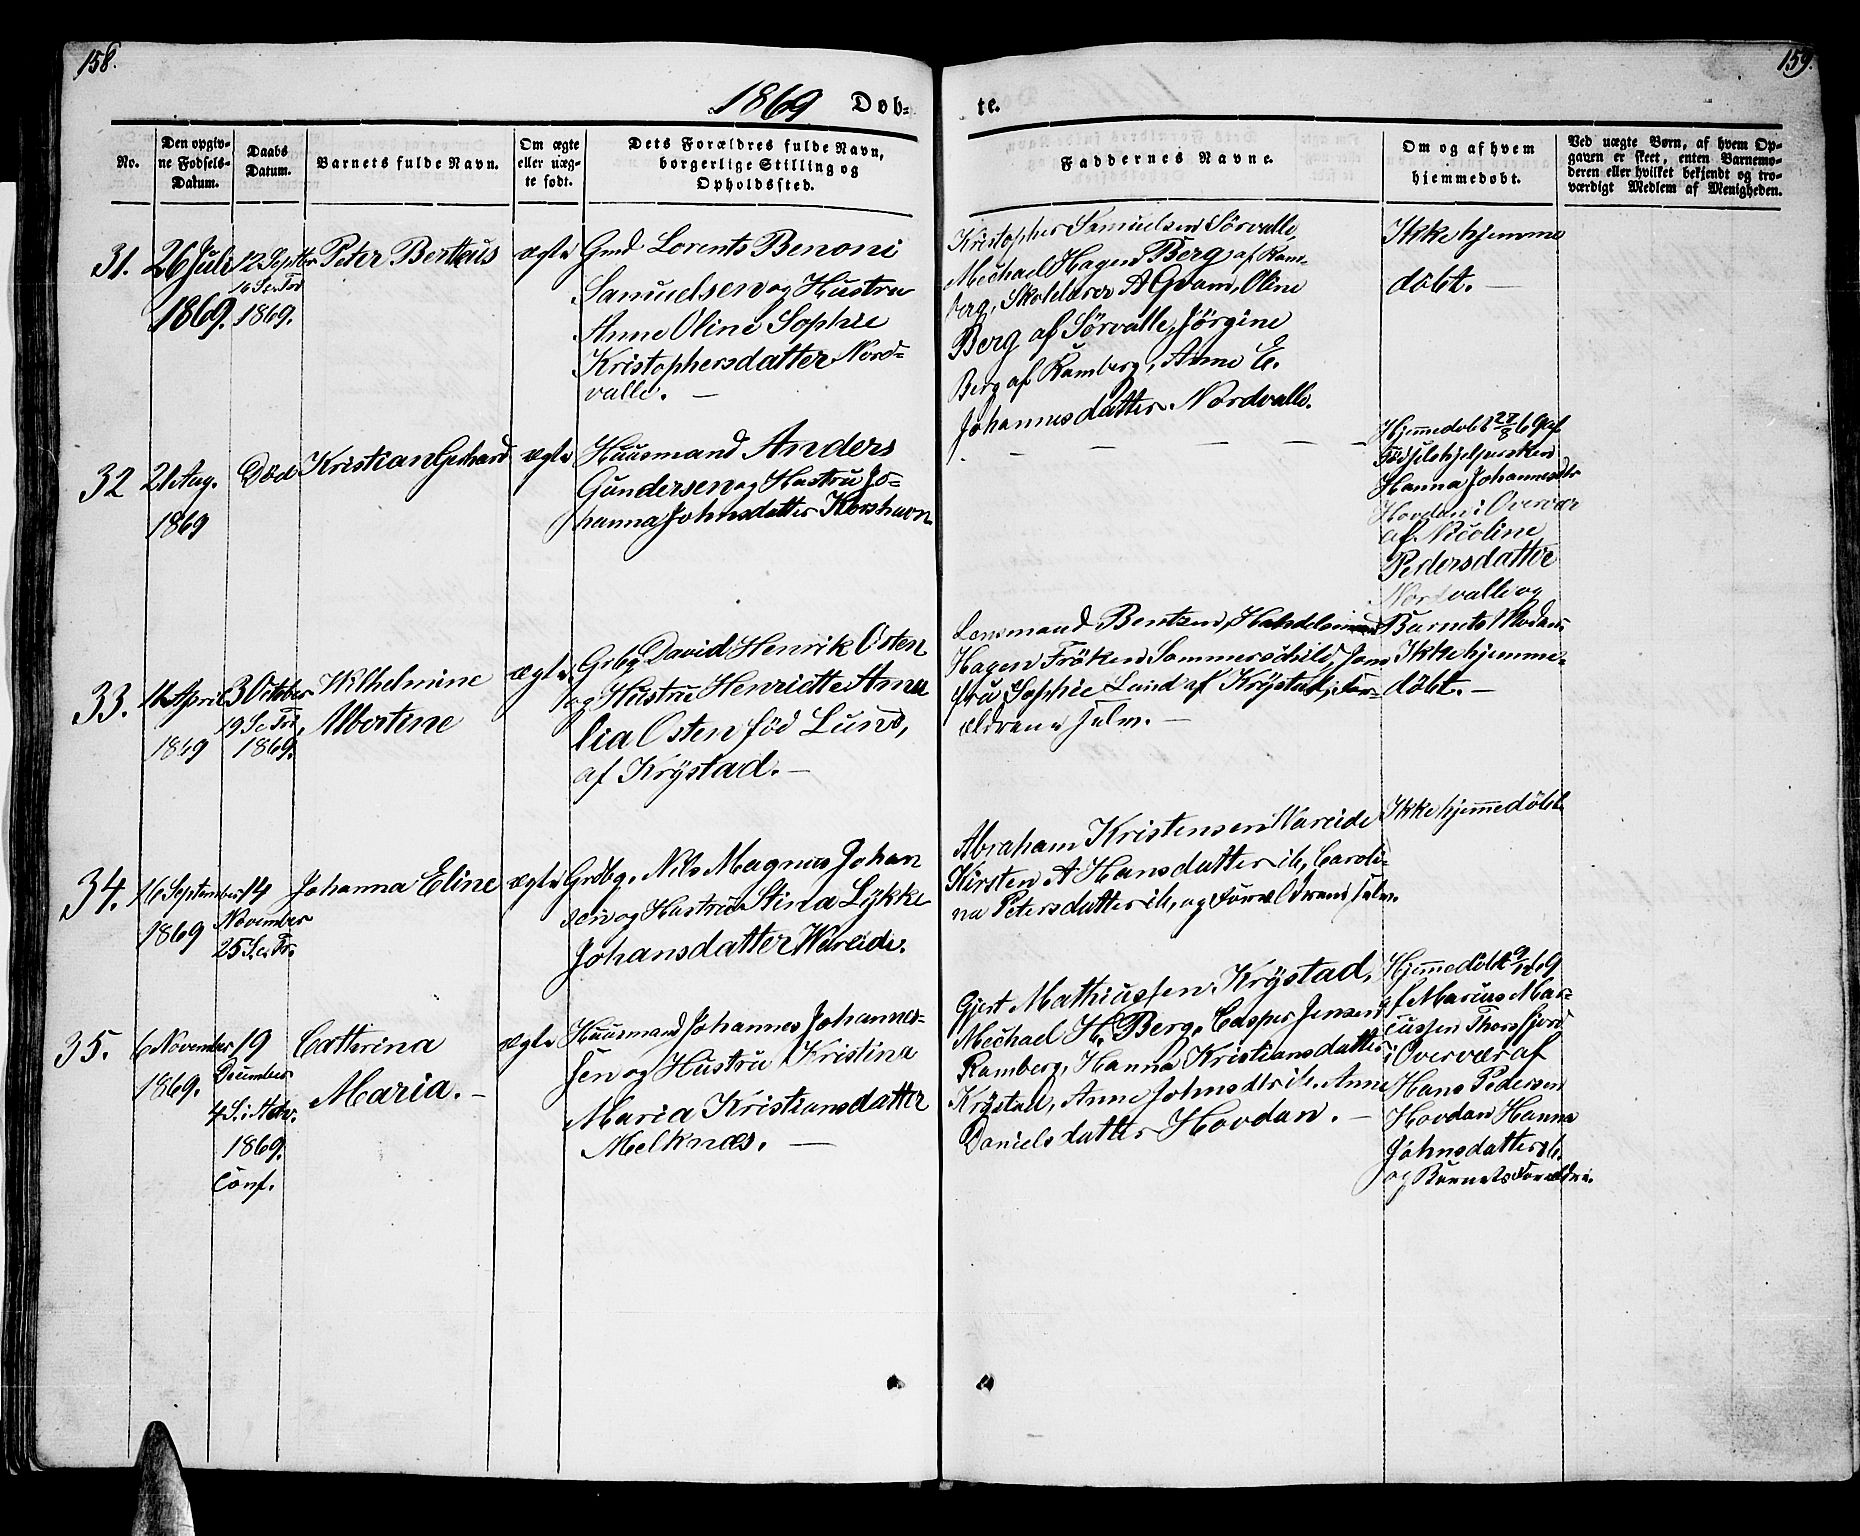 158.
159.
1869 Døb-
te.
No.
Den opgiv-
ne Fødsels-
Datum.
Daabs
Datum.
Barnets fulde Navn.
Om ægte
eller uæg-
te født.
Dets Forældres fulde Navn,
borgerlige Stilling og
Opholdssted.
Faddernes Navne.
Om og af hvem
hjemmedøbt.
Ved uægte Børn, af hvem Op-
gaven er skeet, enten Barnemo-
deren eller hvilket bekjendt og tro-
værdigt Medlem af Menigheden.
31.
26 Juli
1869.
12 Septbr
16 S. e. Tr
1869.
Peter Berteus
ægte
Gmd Lorents Benoni
Samuelsen og Hustru
Anne Oline Sophie
Kristophersdatter Nord-
valle. —
Kristopher Samuelsen Sørvalle,
Mechael Hagen Berg af Ram-
berg, Skolelærer A Qvam, Oline
Berg af Sørvalle, Jörgine
Berg af Ramberg, Anne E.
Johannesdatter Nordvalle.
Ikke hjemme
döbt. —
32
21 Aug.
1869
Död
Kristian Gerhard
ægte
Huusmand Anders
Gundersen og Hustru Jo-
hanna Johnsdatter Korshavn
Hjemedöbt 28/8 69 af
Födselshjelpersken
Hanna Johannesdtr
Hovdan i Overvær
af Nicoline
Pedersdatter
Nordvalle og
Barnets Moder.
33.
11 April
1869
3 October
19 S. e. Tr.
1869.
Wilhelmine
Albertine
ægte
Grbg David Henrik Osten
og Hustru Henriette Ama
lia Osten föd Lund,
af Krÿstad. —
Lensmand Bentzen, Handelsmand
Hagen Fröken Sommerschild, Jom
fru Sophie Lund af Krÿstad, For-
ældrene Selv. —
Ikke hjemme-
döbt. —
34.
16 September
1869
14
November
25 S. e. Tr.
Johanna Eline
ægte
Grdbg. Nils Magnus Johan
sen og Hustru Stina Lÿkke
Johansdatter Wareide.
Abraham Kristensen Wareide
Kirsten A Hansdatter ib, Caroli-
na Petersdatter ib, og Forældrene Selv.
Ikke hjemedöbt
35.
6 November
1869.
19
December
4 S. i Adv.
1869.
Conf.
Cathrina
Maria. —
ægte
Huusmand Johannes Johannes-
sen og Hustru Kristina
Maria Kristiansdatter
Melknæs. —
Gjert Mathiussen Krÿstad,
Mechael H. Berg, Casper Jensen
Ramberg, Hanna Kristiansdatter
Krÿstad, Anne Johnsdtr ib. Anne
Danielsdatter Hovdan. —
Hjemedöbt
af Marius Mar-
cussen Thorsfjord
i Overvær af
Hans Pedersen
Hovdan Hanna
Johnsdatter ib.
og Barnets Forældre.